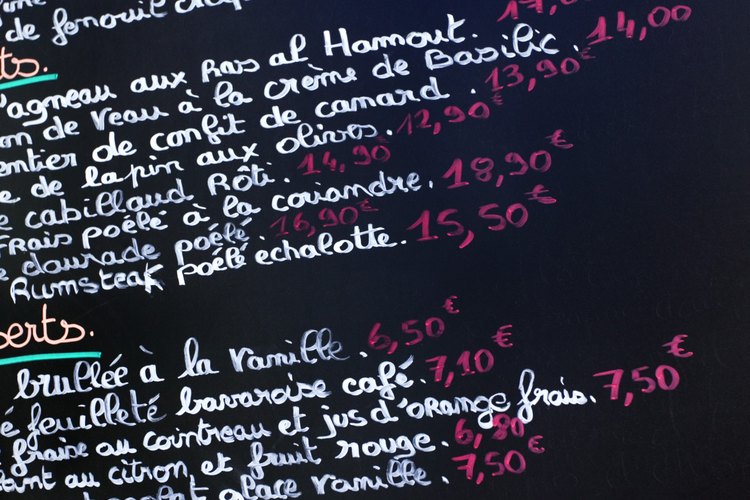 de fenouil 17,
ts.
agneau aux Ras al Hamout. 14,00
on de veau à la crème de Basilic. 13,90€
entier de confit de canard. 12,90€
e de lapin aux olives. 14,90
e cabillaud Rôti. 18,90€
frais poêlé à la coriandre.
e daurade poêlé 16,90€ 15,50€
Rumsteak poêlé echalotte.
erts.
brullée à la vanille. 6,50€
é feuilleté bavaroise café. 7,10€
fraise au cointreau et jus d'orange frais. 7,50€
tant au citron et fruit rouge. 6,80
glace vanille. 7,50€